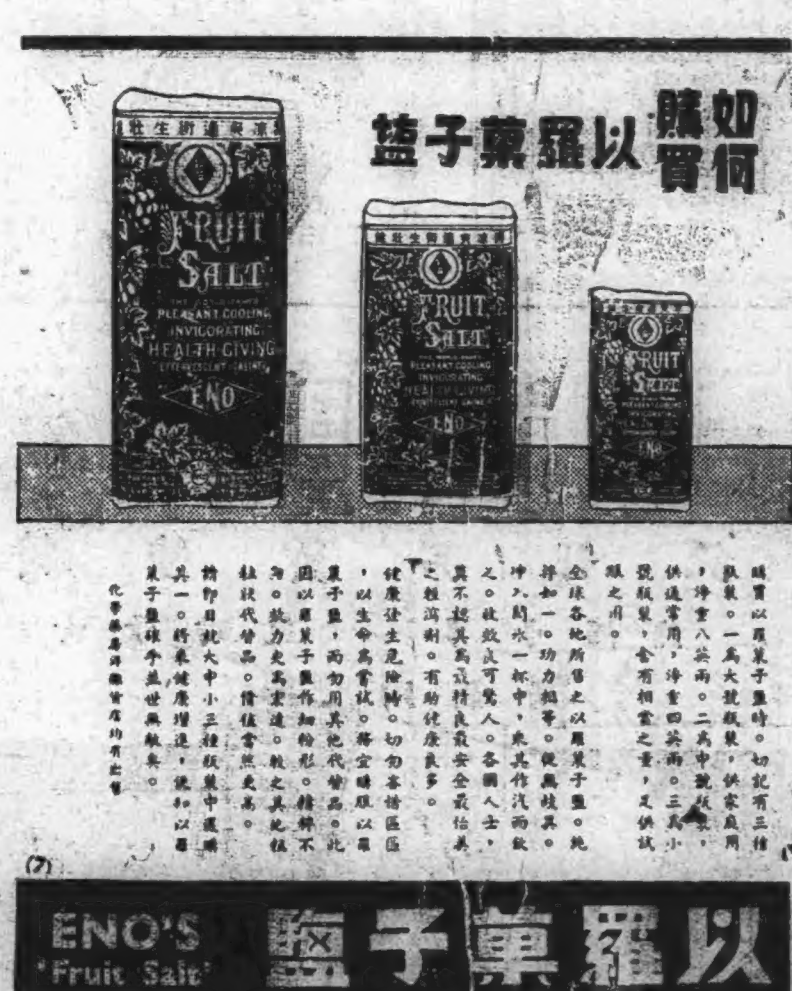 如何
購買
以羅菓子鹽
FRUIT
SALT
PLEASANT COOLING
INVIGORATING
HEALTH-GIVING
EFFERVESCENT SALINE
ENO
FRUIT
SALT
PLEASANT COOLING
INVIGORATING
HEALTH-GIVING
ENO
FRUIT
SALT
ENO
購買以羅菓子鹽時。切記有三種
瓶裝。一為大號瓶裝,供家庭用
,淨重八英兩。二為中號瓶裝,
供通常用,淨重四英兩。三為小
號瓶裝,含有相當之量,足供試
服之用。
全球各地所售之以羅菓子鹽。純
粹如一。功力相等。從無歧異。
冲入開水一杯中,乘其作汽而飲
之。收效良可驚人。各國人士,
莫不認其為最精良最安全最怡美
之輕瀉劑。有助健康良多。
健康發生危險時。切勿吝惜區區
,以生命為嘗試。務宜購服以羅
菓子鹽,而勿用其他代替品。此
因以羅菓子鹽作細粉形。精粹不
。效力更為宏遠。較之其他粗
粒狀代替品。價值當然更高。
請即日就大中小三種瓶裝中選購
其一。將來健康增進,便知以羅
菓子鹽確乎蓋世無敵矣。
均有出售
(7)
ENO'S
'Fruit Salt'
以羅菓子鹽